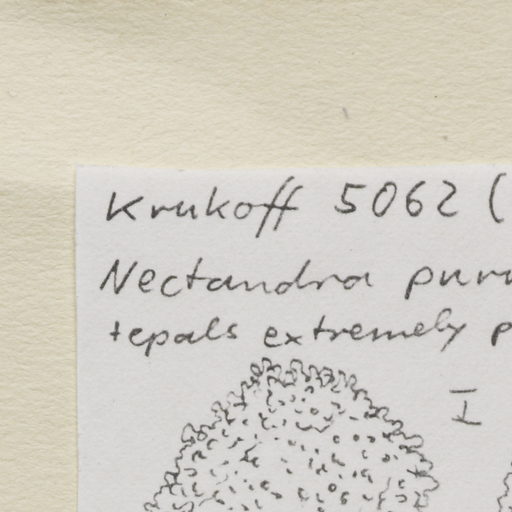 Krukoff 5062 (
Nectandra
tepals extremely p
I